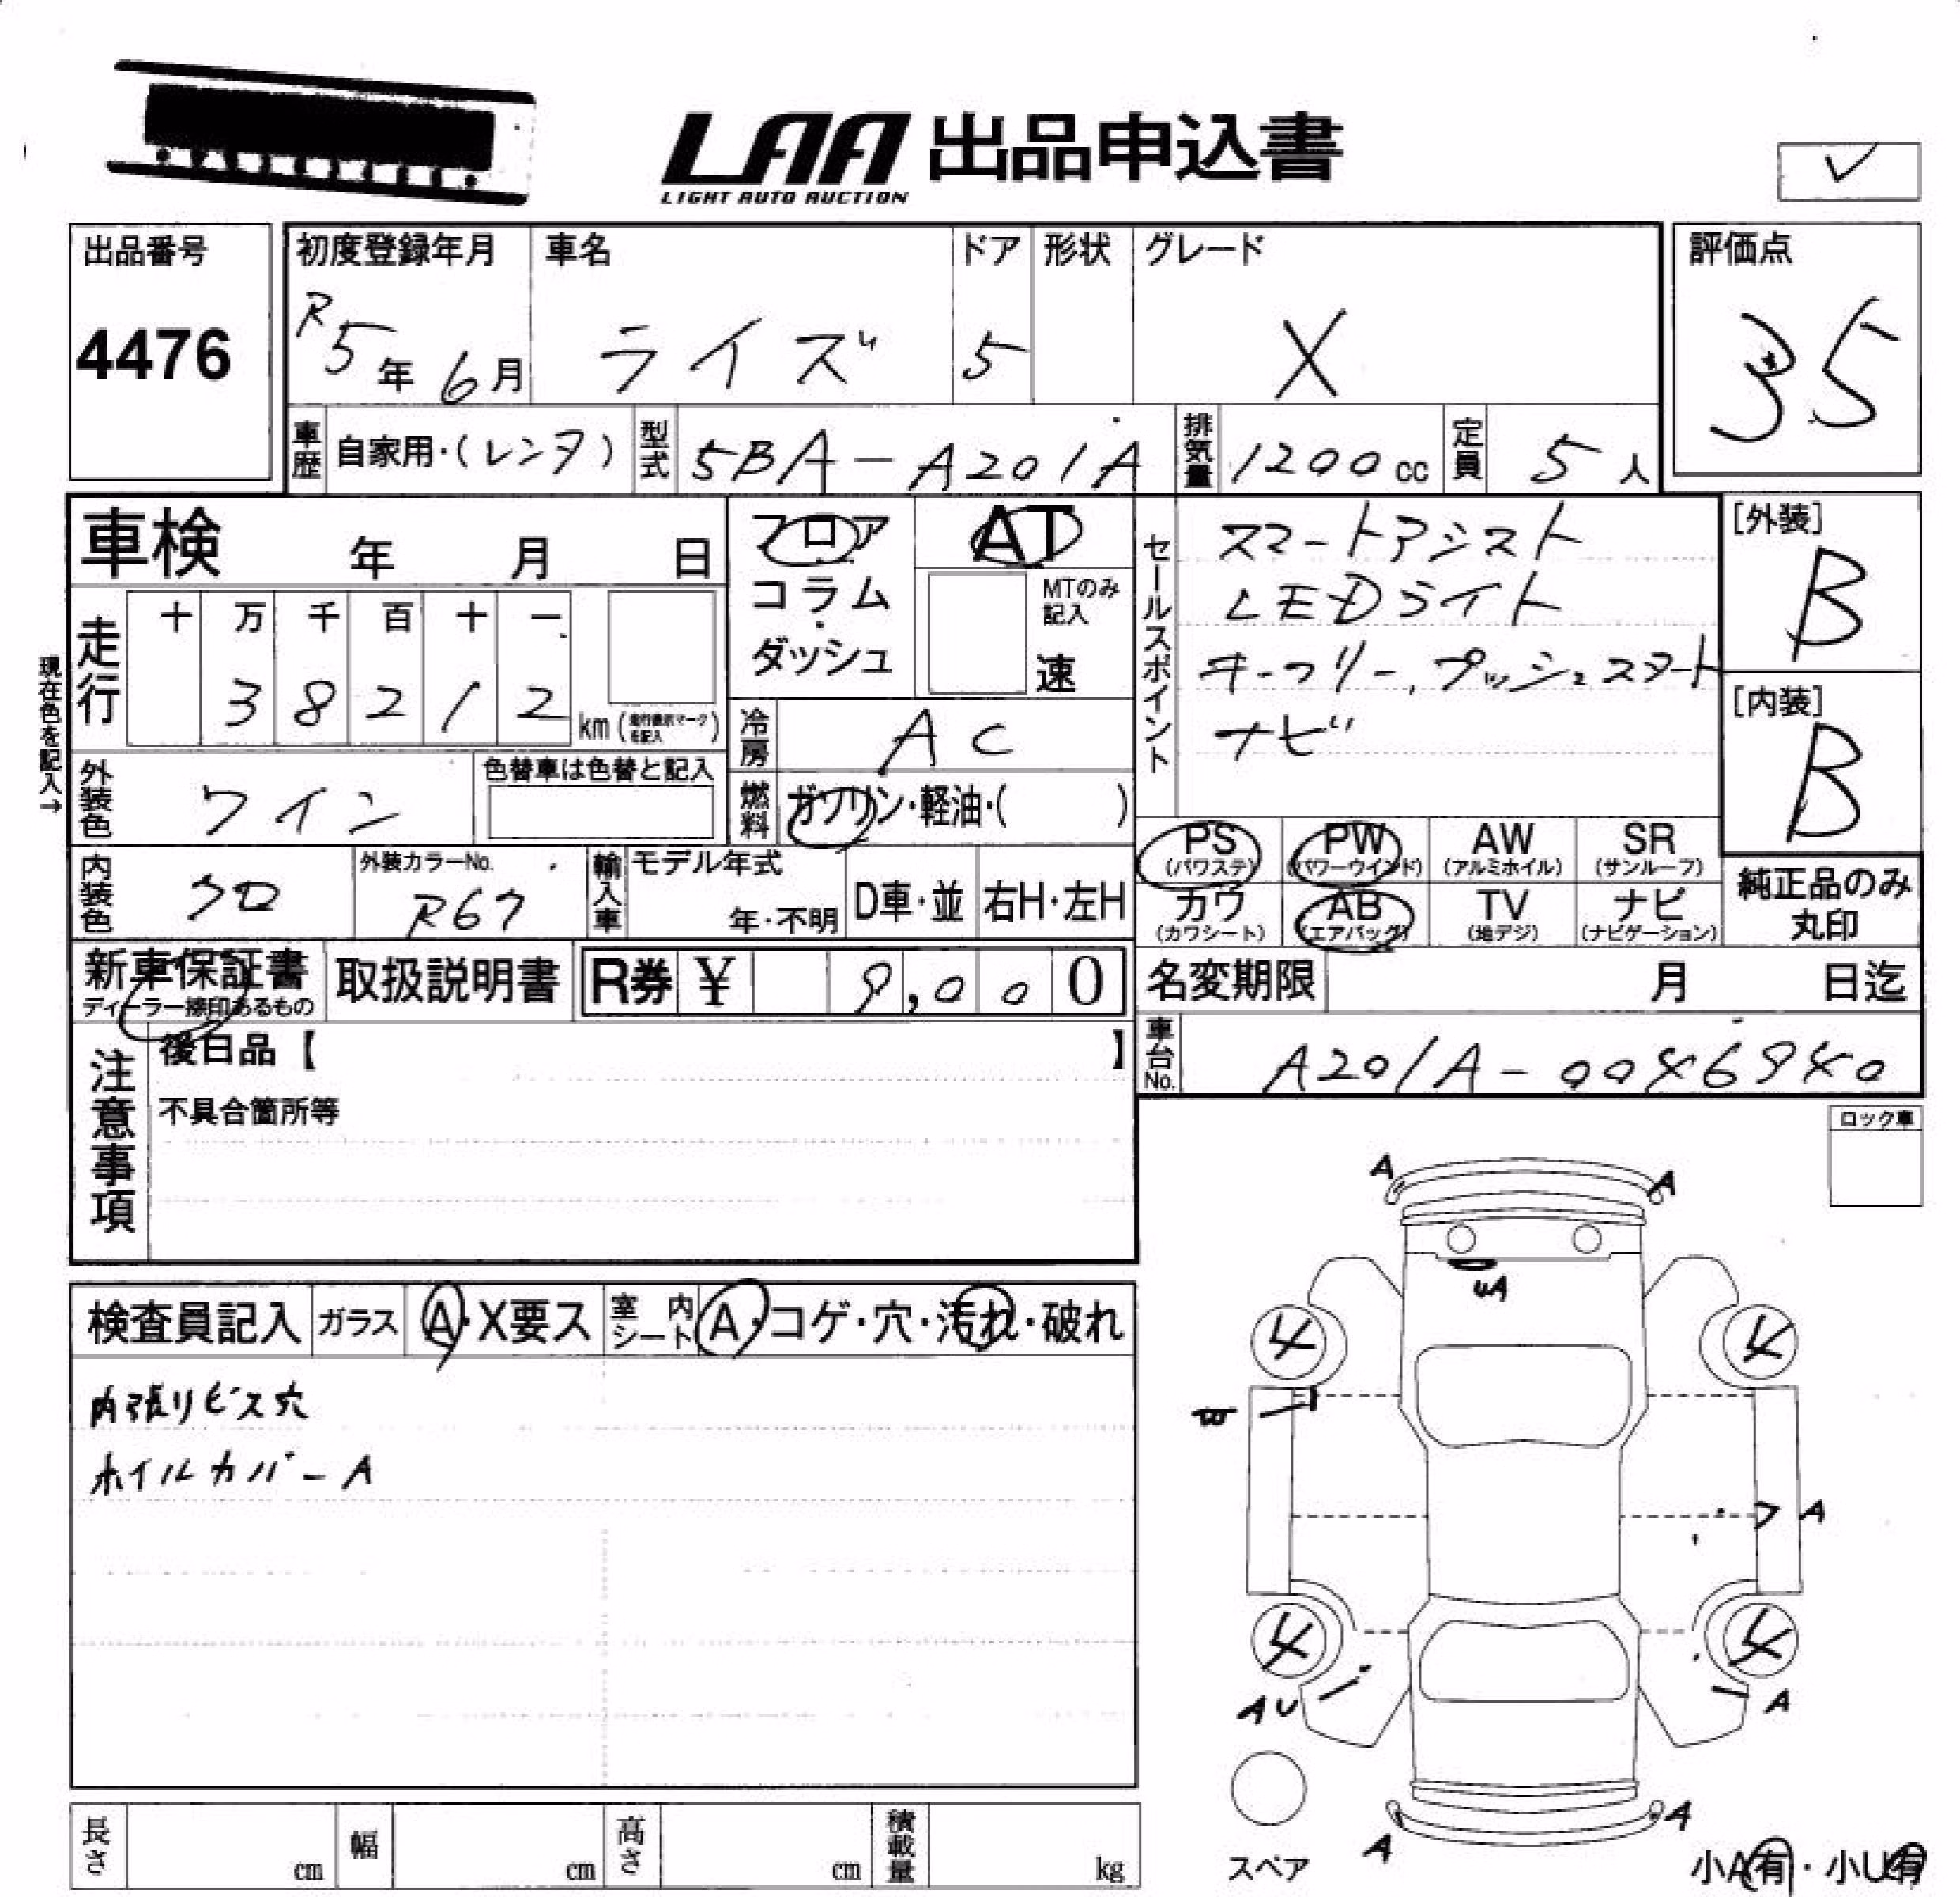 LAA 出品申込書
LIGHT AUTO AUCTION
出品番号
4476
初度登録年月
R5年6月
車名
ライズ
ドア
5
形状
グレード
X
評価点
35
車歴
自家用・(レンタ)
型式
5BA-A201A
排気量
1200cc
定員
5人
車検 年 月 日
フロア
コラム
ダッシュ
AT
MTのみ記入
速
セールスポイント
スマートアシスト
LEDライト
キーフリー,プッシュスタート
ナビ
[外装]
B
[内装]
B
現在色を記入→
走行
十 万 千 百 十 一
3 8 2 1 2
km (走行表示マークを記入)
冷房
AC
外装色
ワイン
色替車は色替と記入
燃料
ガソリン・軽油・( )
内装色
クロ
外装カラーNo.
R67
輸入車
モデル年式
年・不明
D車・並
右H・左H
PS
(パワステ)
PW
(パワーウインド)
AW
(アルミホイル)
SR
(サンルーフ)
カワ
(カワシート)
AB
(エアバッグ)
TV
(地デジ)
ナビ
(ナビゲーション)
純正品のみ
丸印
新車保証書
ディーラー捺印あるもの
取扱説明書
R券 ¥ 9,000
名変期限 月 日迄
車台No.
A201A-0046940
注意事項
後日品【 】
不具合箇所等
ロック車
検査員記入
ガラス
A・X要ス
室内シート
A・コゲ・穴・汚れ・破れ
内張りビス穴
ホイルカバーA
A
A
UA
4
4
A
4
4
AU
A
A
A
スペア
小A有・小U有
長さ cm
幅 cm
高さ cm
積載量 kg